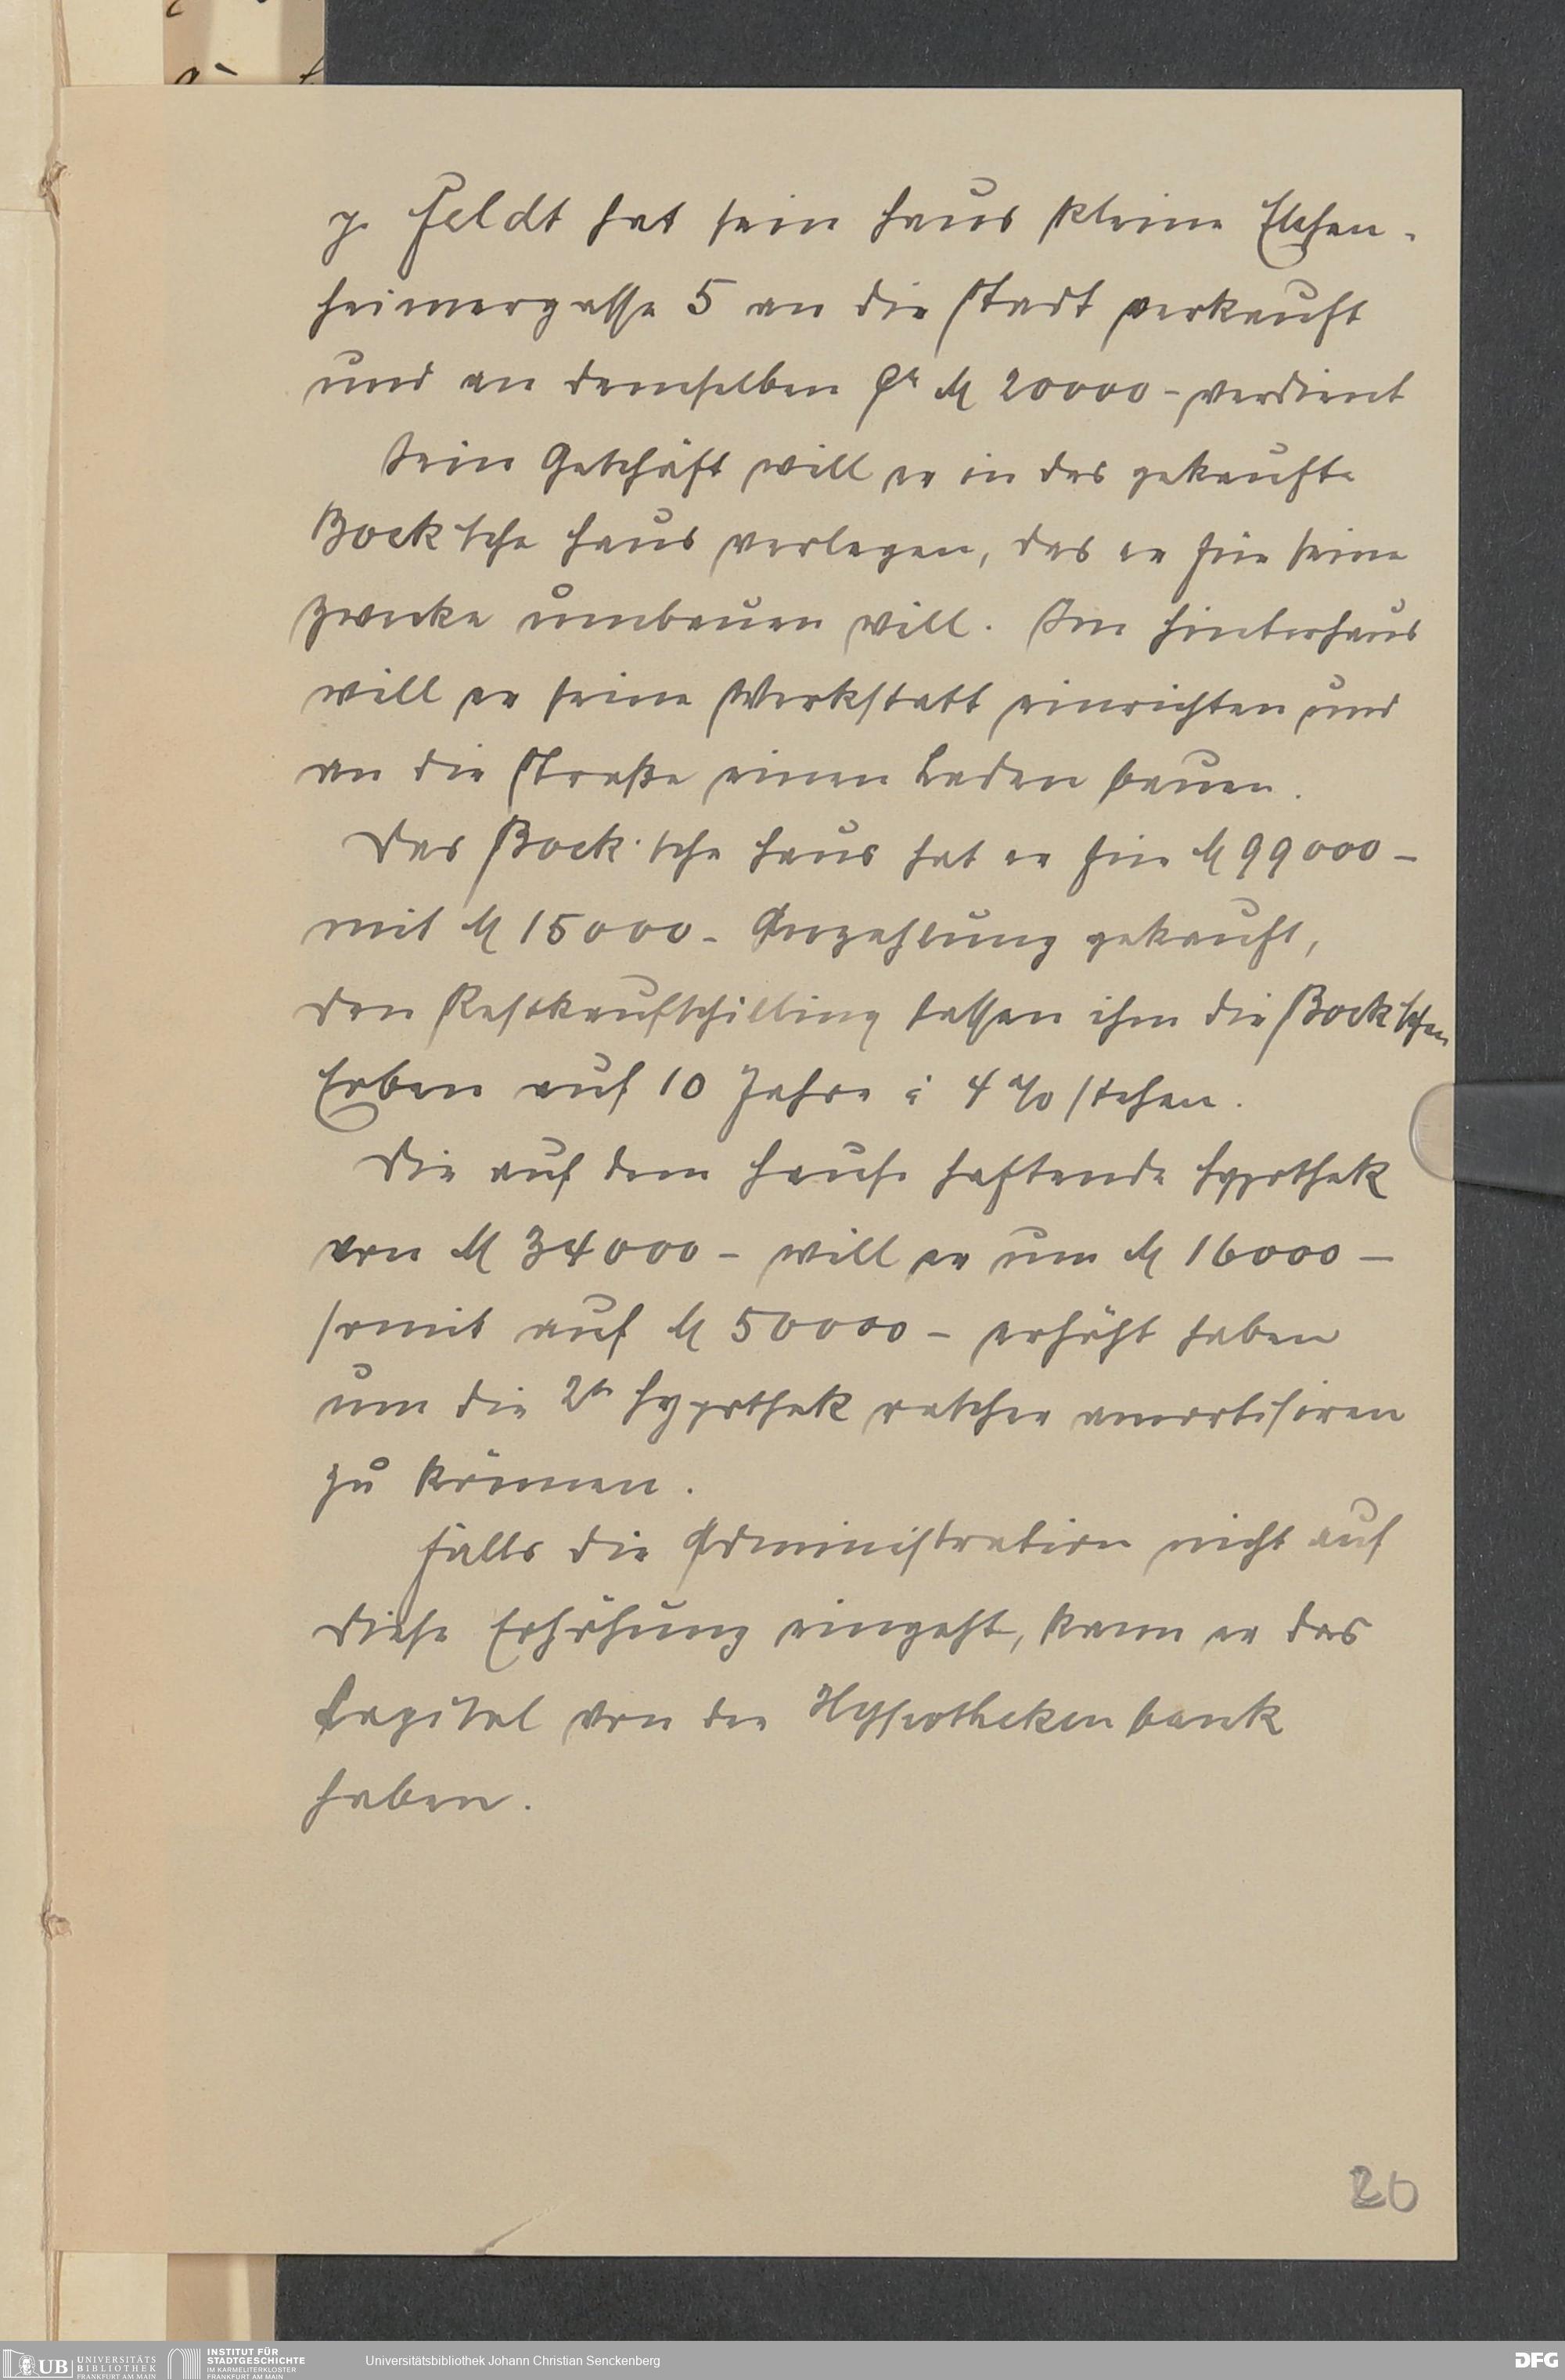 p. Feldt hat sein Haus kleine Eschen-
heimergasse 5 an die Stadt verkauft
und an demselben ca M 20000 – verdient
Sein Geschäft will er in das gekaufte
Bock'sche Haus verlegen, das er für seine
Zwecke umbauen will. Im Hinterhaus
will er seine Werkstatt einrichten und
an die Straße einen Laden bauen.
Das Bock'sche Haus hat er für M 99000 –
mit M 15000 – Anzahlung gekauft,
den Restkaufschilling lassen ihm die Bock'schen
Erben auf 10 Jahre à 4 % stehen.
Die auf dem Hause haftende Hypothek
von M 34000 – will er um M 16000 –
somit auf M 50000 – erhöht haben
um die 2te Hypothek rascher amortisiren
zu können.
Falls die Administration nicht auf
diese Erhöhung eingeht, kann er das
Capital von der Hypothekenbank
haben.
20
UB UNIVERSITÄTS
BIBLIOTHEK
FRANKFURT AM MAIN
INSTITUT FÜR
STADTGESCHICHTE
IM KARMELITERKLOSTER
FRANKFURT AM MAIN
Universitätsbibliothek Johann Christian Senckenberg
DFG